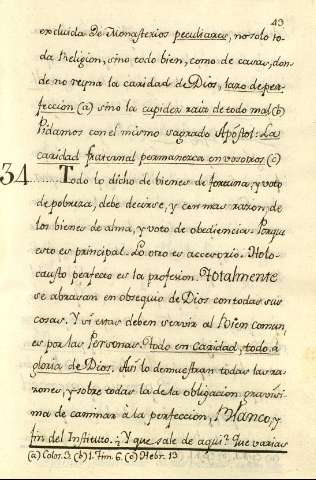 43
excluida de Monasterios peculiares, no solo to-
da Religion, sino todo bien, como de casas, don-
de no reyna la caridad de Dios, lazo de per-
feccion (a) sino la cupidez raiz de todo mal (b)
Pidamos con el mismo sagrado Apóstol: La
caridad fraternal permanezca en vosotros (c)
34 Todo lo dicho de bienes de fortuna, y voto
de pobreza, debe decirse, y con mas razon, de
los bienes de alma, y voto de obediencia. Porque
esto es principal. Lo otro es accesorio. Holo-
causto perfecto es la profesion. Totalmente
se abrasan en obsequio de Dios con todas sus
cosas. Y si estas deben servir al Bien comun,
es por las Personas. Todo en Caridad, todo á
gloria de Dios. Asi lo demuestran todas las ra-
zones, y sobre todas la de la obligacion gravisi-
ma de caminar à la perfeccion, Blanco, y
fin del Instituto. Y que sale de aqui? Que varias
(a) Colos. 3. (b) 1. Tim. 6. (c) Hebr. 13